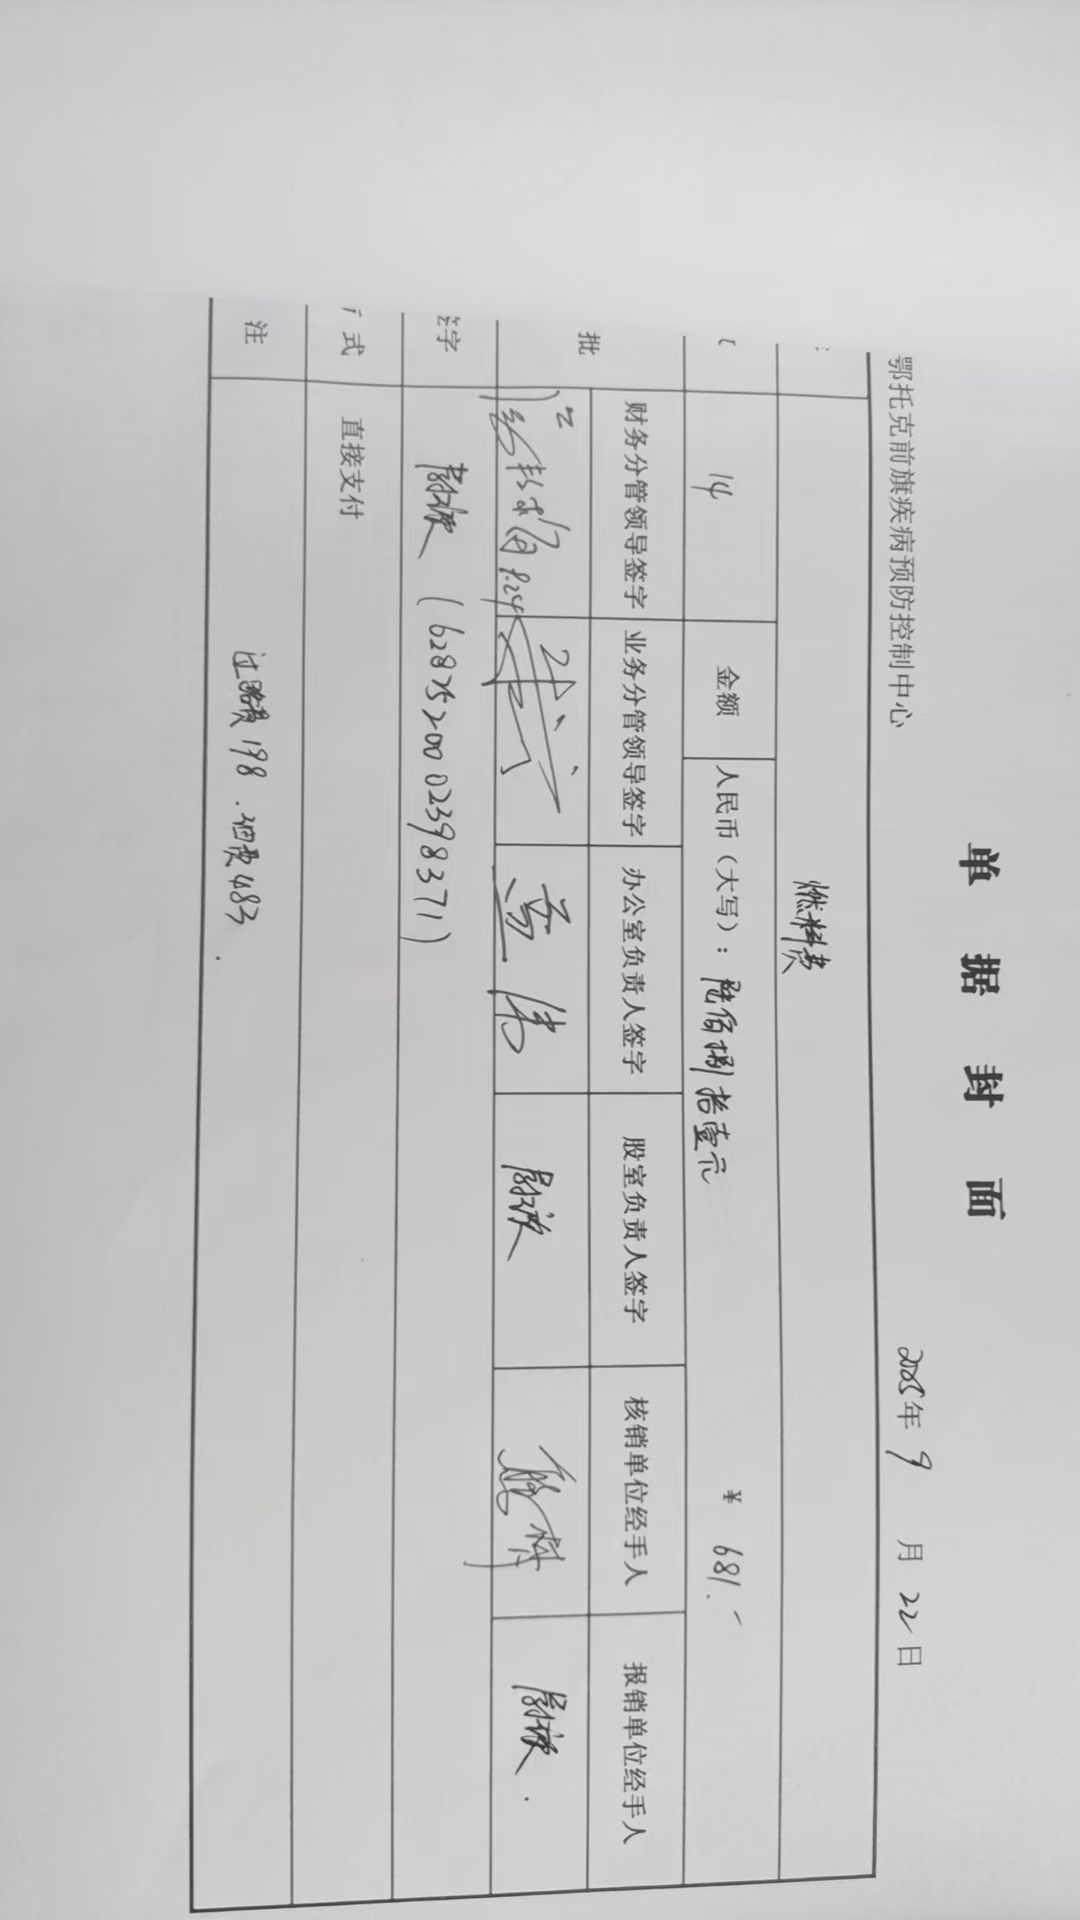 单据封面
鄂托克前旗疾病预防控制中心 2025年9月22日
燃料费
14 金额 人民币（大写）：陆佰捌拾壹元 ¥ 681.-
批 财务分管领导签字 业务分管领导签字 办公室负责人签字 股室负责人签字 核销单位经手人 报销单位经手人
字 (6287520002398371)
式 直接支付
注 过路费198.油费483.